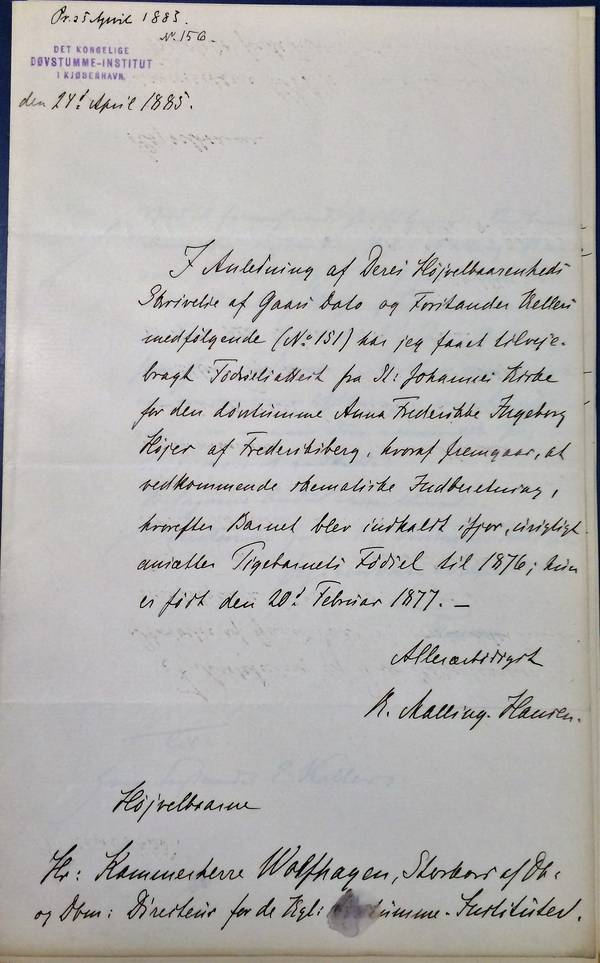 Pr. 25 April 1885.
No. 156.
DET KONGELIGE
DØVSTUMME-INSTITUT
I KJØBENHAVN.
den 24d April 1885.
I Anledning af Deres Højvelbaarenheds
Skrivelse af Gaars Dato og Forstander Kellers
medfølgende (No 151) har jeg faaet tilveje-
bragt Fødselsattest fra St: Johannes Kirke
for den døvstumme Anna Frederikke Ingeborg
Højer af Frederiksberg, hvoraf fremgaar, at
vedkommende skematiske Indberetning,
hvorefter Barnet blev indkaldt ifjor, urigtigt
ansætter Pigebarnets Fødsel til 1876; hun
er født den 20d Februar 1877. —
Allerærbødigst
R. Malling-Hansen.
Højvelbaarne
Hr: Kammerherre Wolfhagen, Storkors af Db:
og Dbm: Directeur for de Kgl: Døvstumme-Instituter.